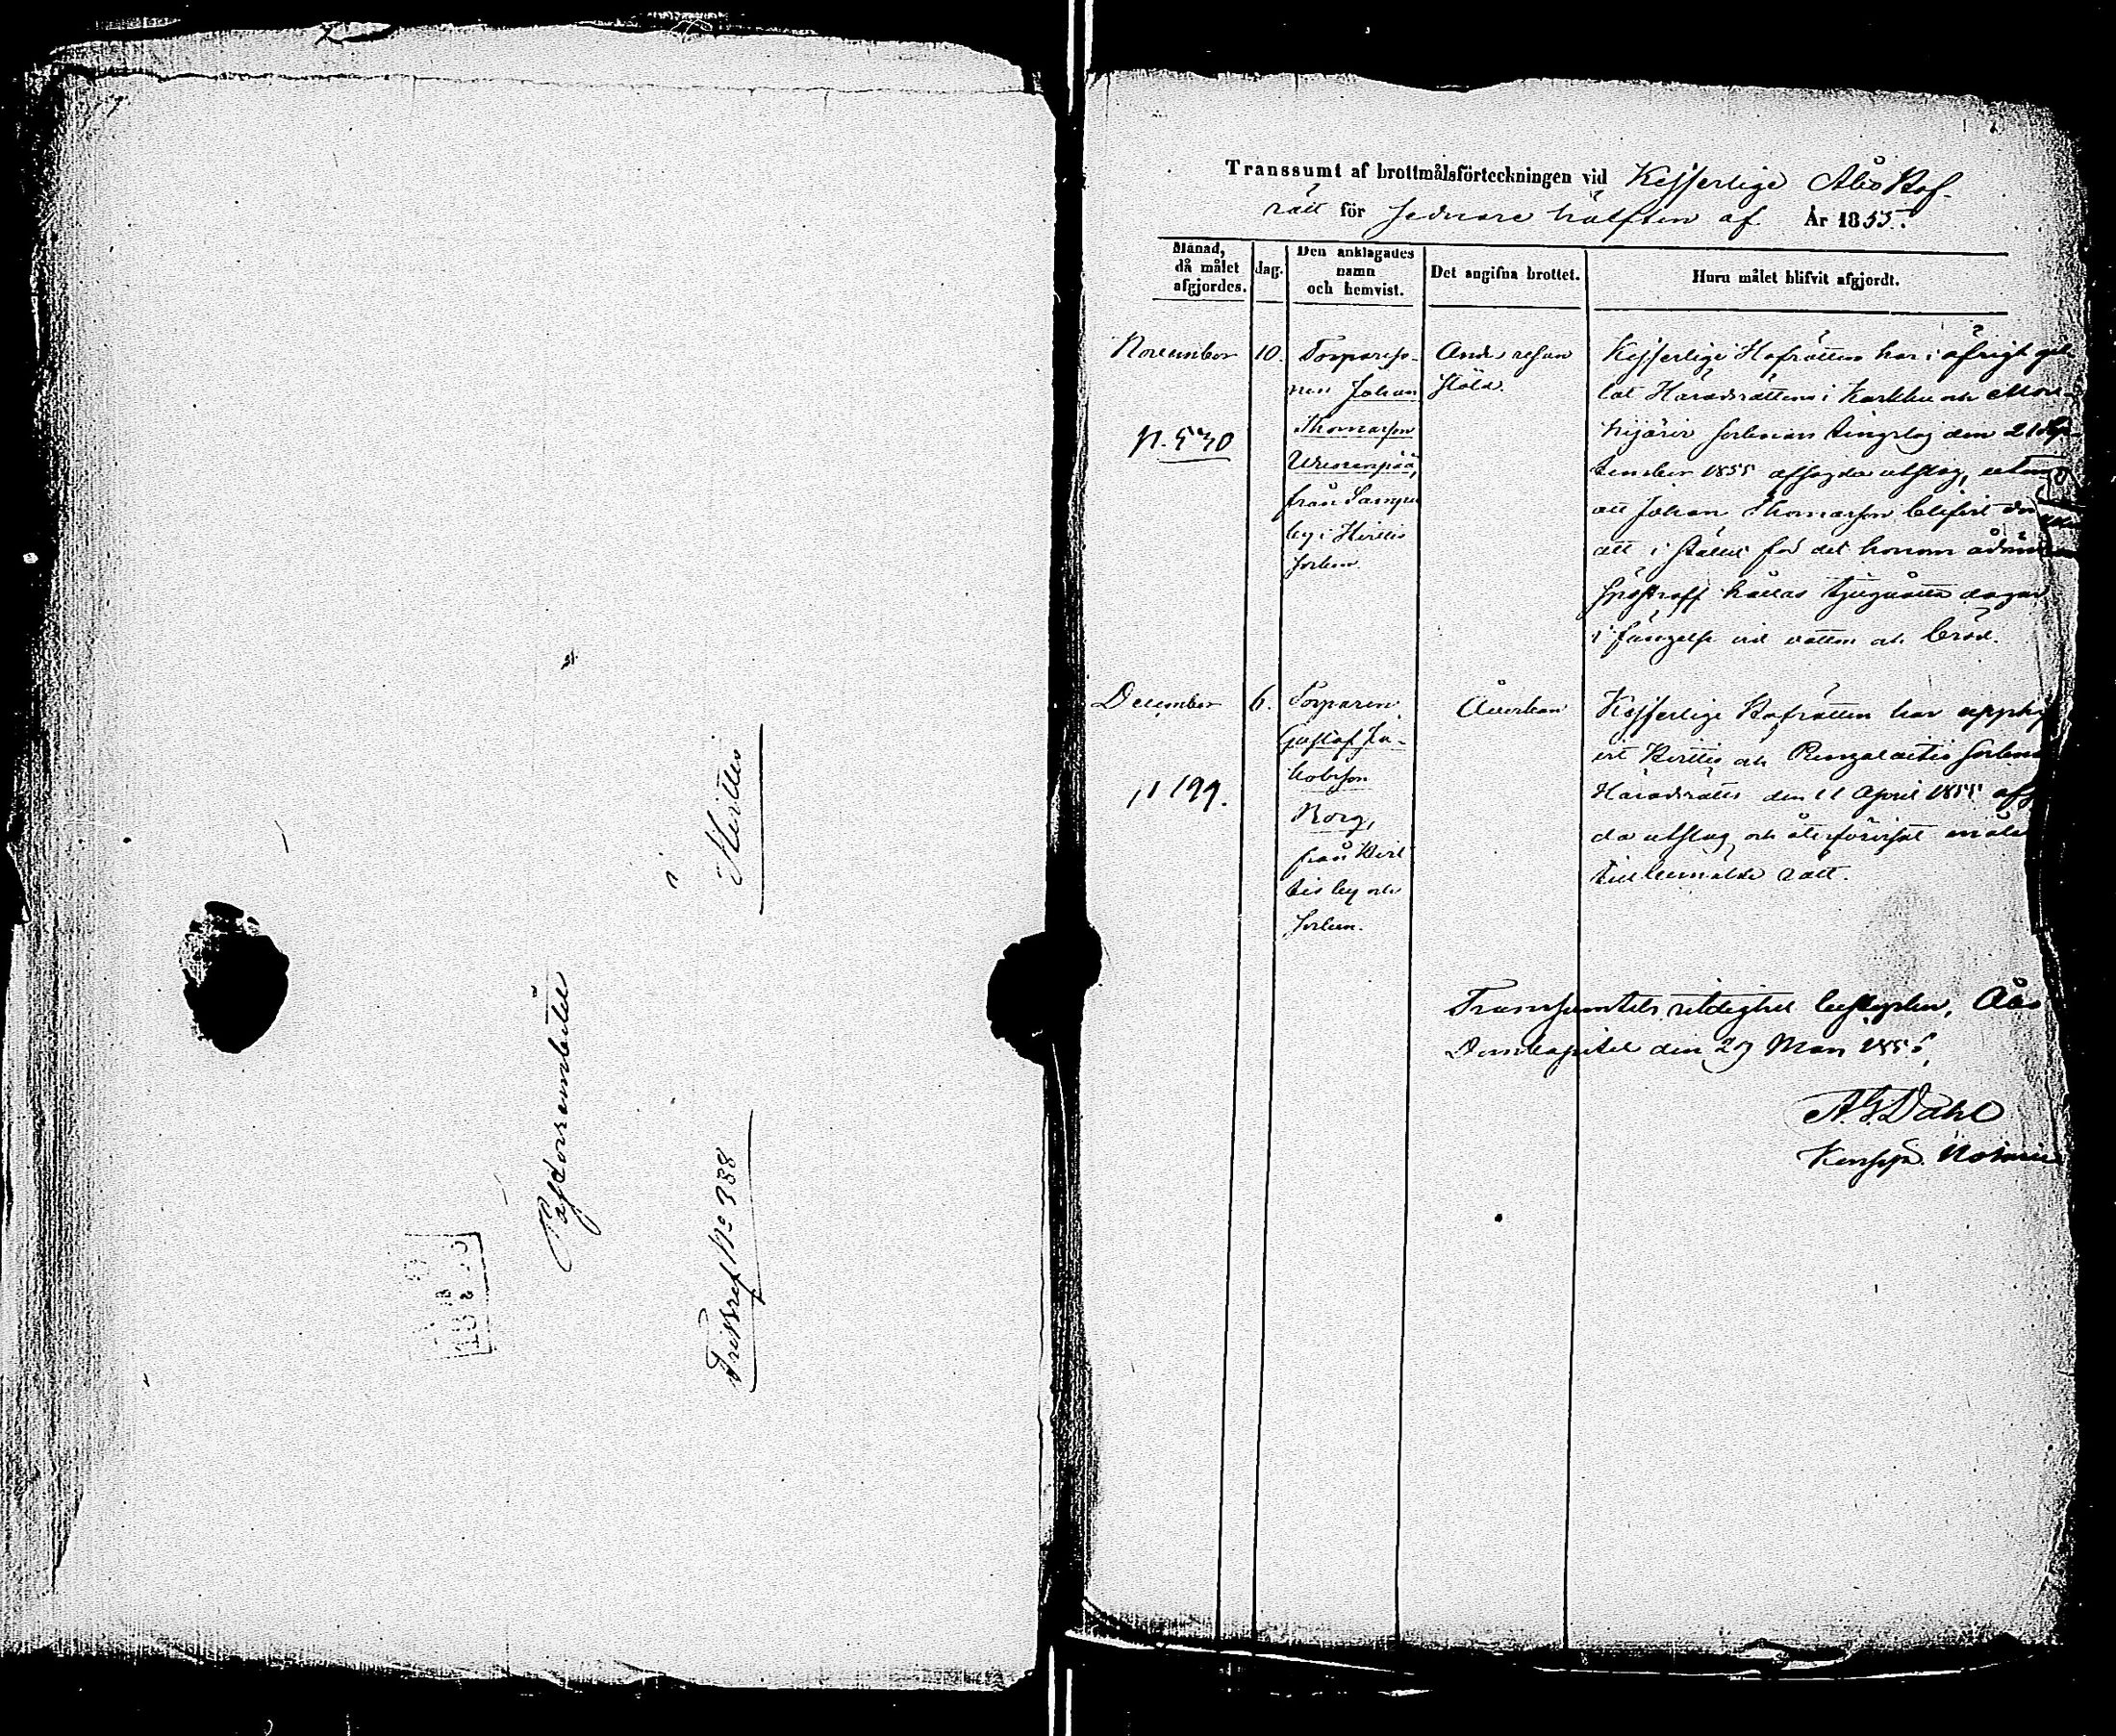 Pastorsembetet
i
Hvittis
FriBref No 388
ÅBO
Transsumt af brottmålsförteckningen vid Kejserlige Åbo Hof-
rätt för sednare hälften af År 1855.
Månad,
då målet
afgjordes.
dag.
Den anklagades
namn
och hemvist.
Det angifna brottet.
Huru målet blifvit afgjordt.
November
10.
N. 530
Torpareso-
nen Johan
Thomasson
från Sampu
by i Hvittis
socken.
Andra resan
stöld.
Kejserlige Hofrätten har i öfrigt gil-
lat Häradsrättens i Karkku och Mou-
hijärvi socknars tingslag den 21 Sep-
tember 1855 afsagda utslag, utom
att Johan Thomasson blifvit
att i stället för det honom ådömda
spöstraff hållas tjuguåtta dagar
i fängelse vid vatten och bröd.
December
6.
N 199.
Torparen
Gustaf Ja-
kobsson
Korg,
från Hvit-
tis by och
socken.
Åverkan
Kejserlige Hofrätten har upphäf-
vit Hvittis och Pungalaitio sockens
Häradsrätts den 11 April 1855 afsag-
da utslag och återförvisat målet
till bemälde rätt.
Transsumtets riktighet bestyrker, Åbo
Domkapitel den 27 Mars
A. G. Dahl
Notarie